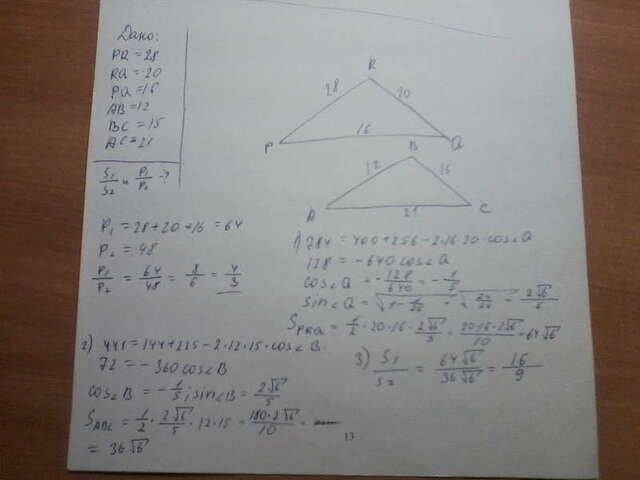 Дано:
PR = 28
RQ = 20
PQ = 16
AB = 12
BC = 15
AC = 21
S₁/S₂ и P₁/P₂ - ?
R
28
20
16
P
Q
B
12
15
A
21
C
P₁ = 28+20+16 = 64
P₂ = 48
P₁/P₂ = 64/48 = 8/6 = 4/3
1) 784 = 400+256-2·16·20·cos∠Q
128 = -640cos∠Q
cos∠Q = -128/640 = -1/5
sin∠Q = √(1-1/25) = √(24/25) = 2√6/5
S_PRQ = 1/2·20·16·2√6/5 = 20·16·2√6/10 = 64√6
2) 441 = 144+225-2·12·15·cos∠B
72 = -360cos∠B
cos∠B = -1/5; sin∠B = 2√6/5
S_ABC = 1/2·2√6/5·12·15 = 180·2√6/10 =
= 36√6
3) S₁/S₂ = 64√6/36√6 = 16/9
13